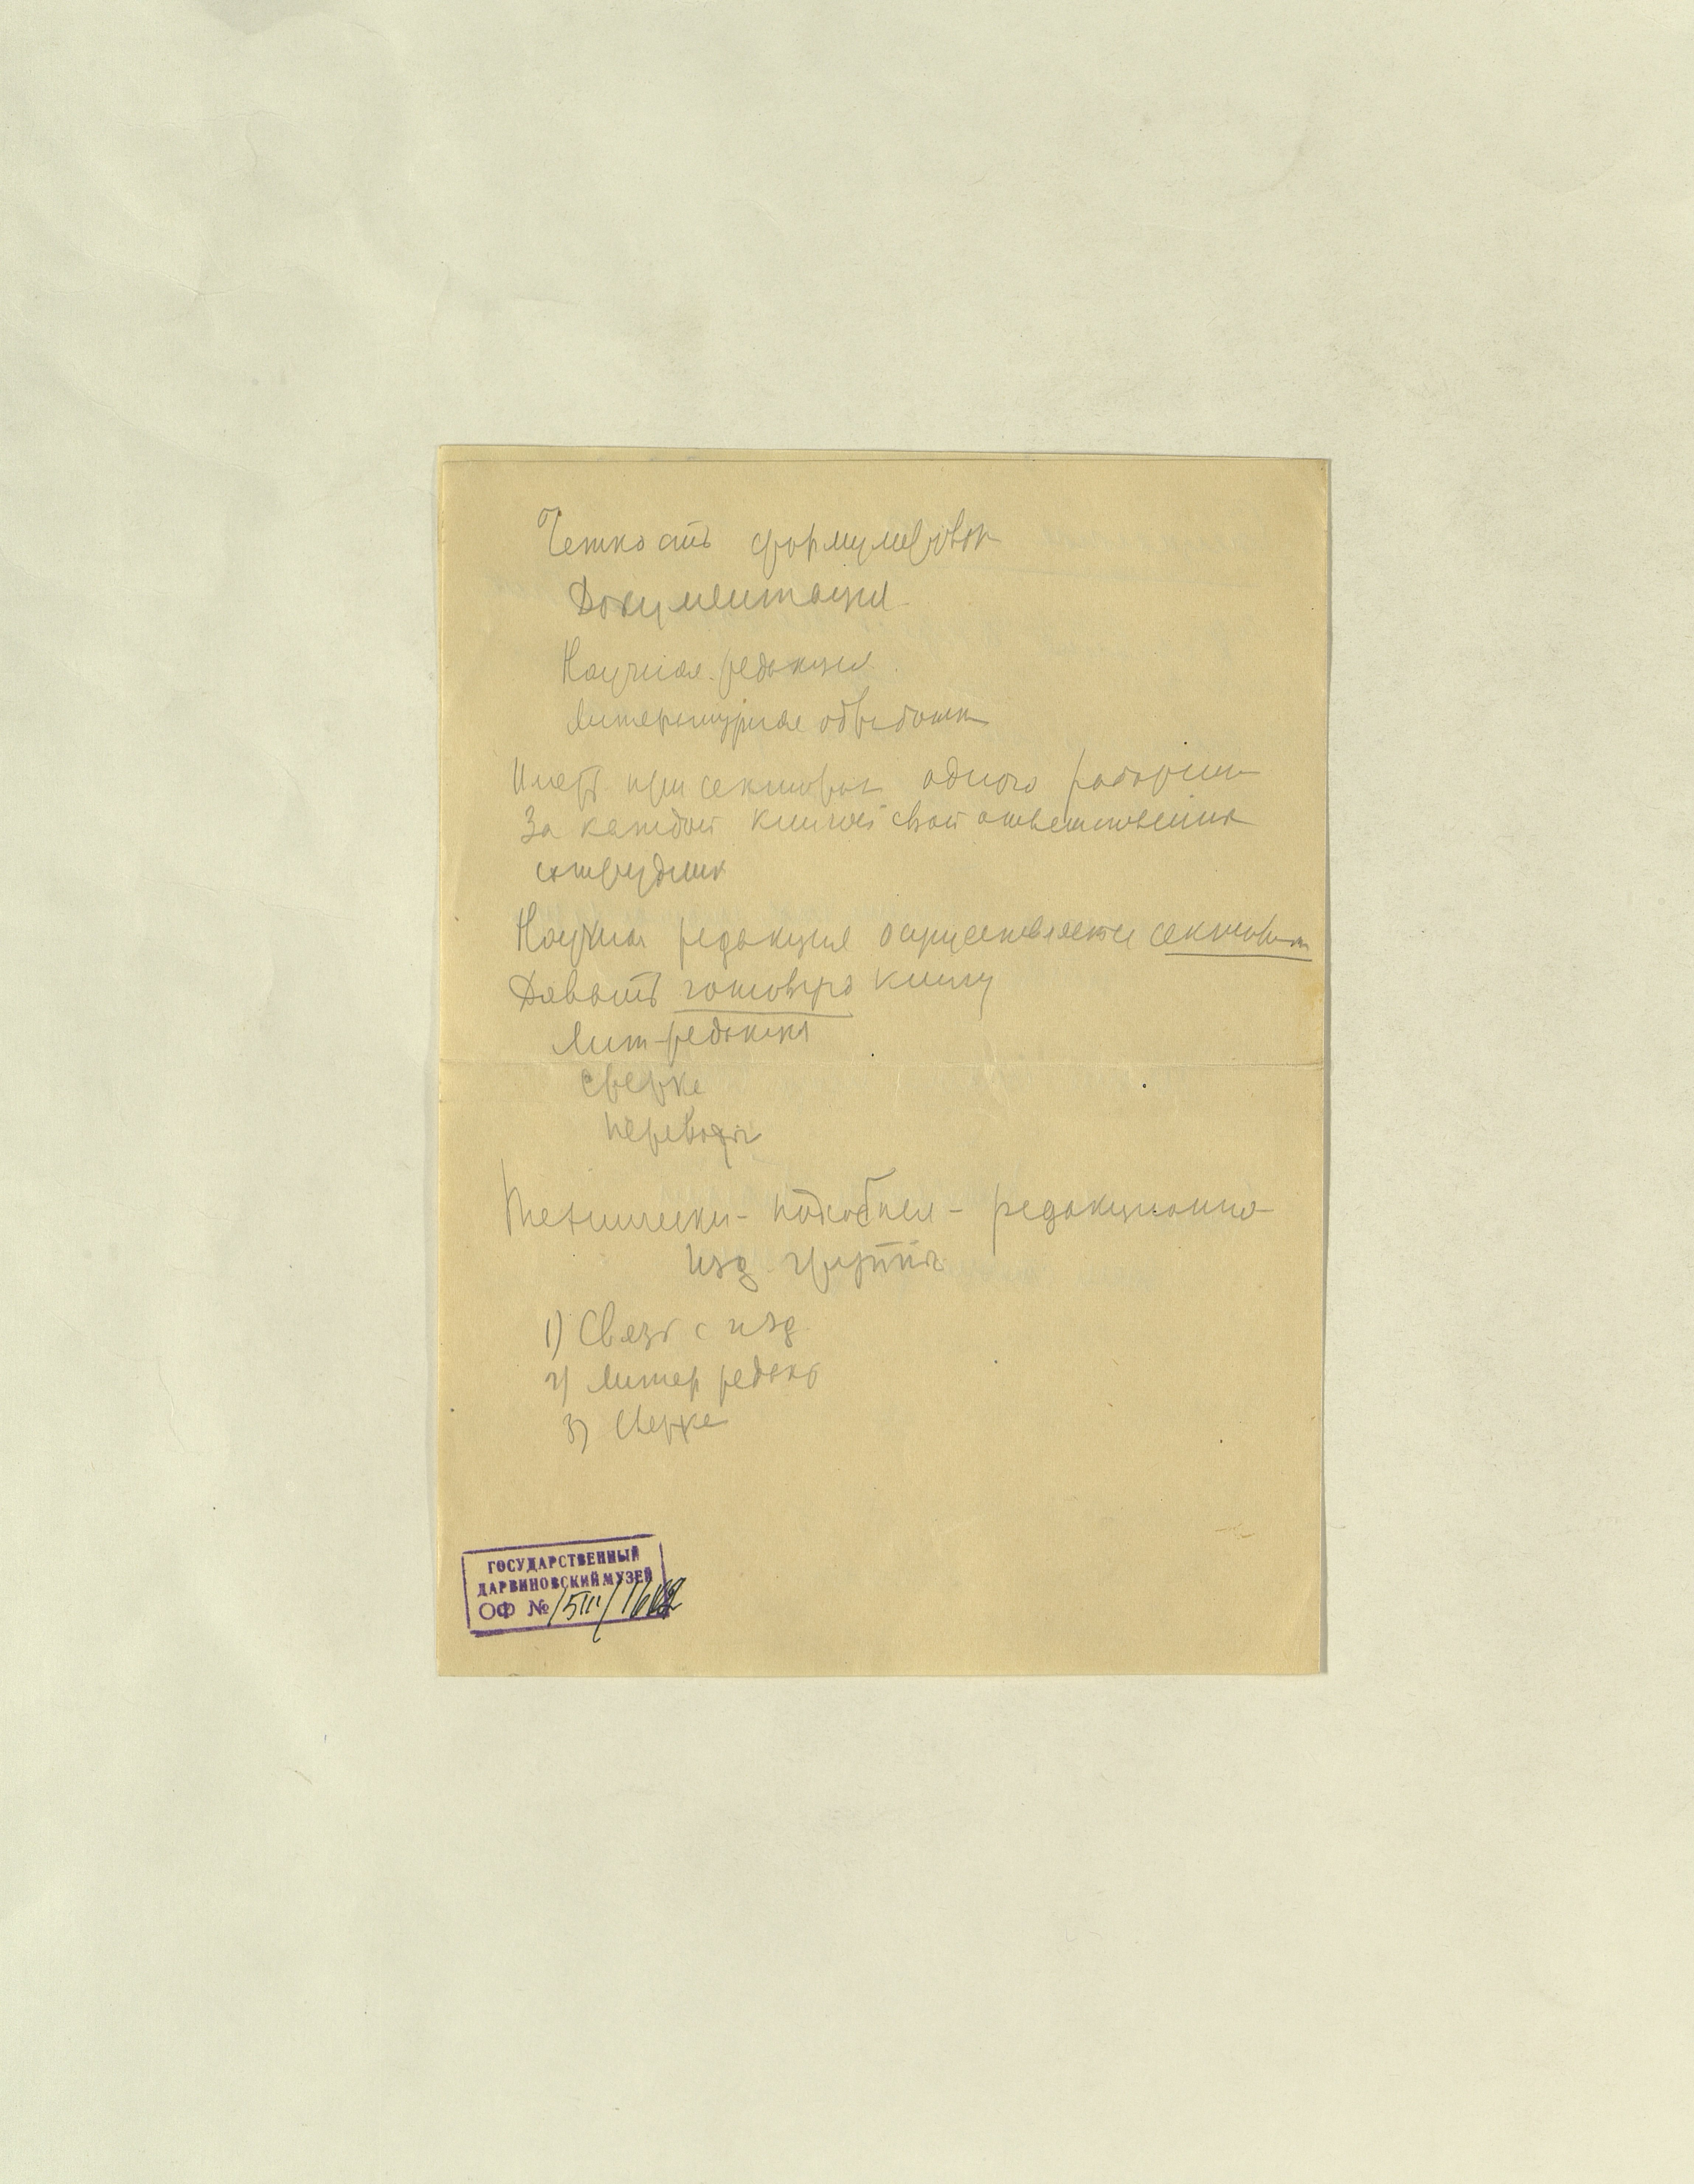 Четкость формулировок
Документация
Научная редакция
Литературная обработка
Иметь при секторах одного
За каждой книгой свой ответственный
сотрудник
Научная редакция осуществляется сектором
Давать готовую книгу
Лит-редакция
Сверка
Переводы
Технически- подсобная - редакционно
изд. группы
1) Связь с изд.
2) Литер редакц
3) Сверка
ГОСУДАРСТВЕННЫЙ
ДАРВИНОВСКИЙ МУЗЕЙ
ОФ №